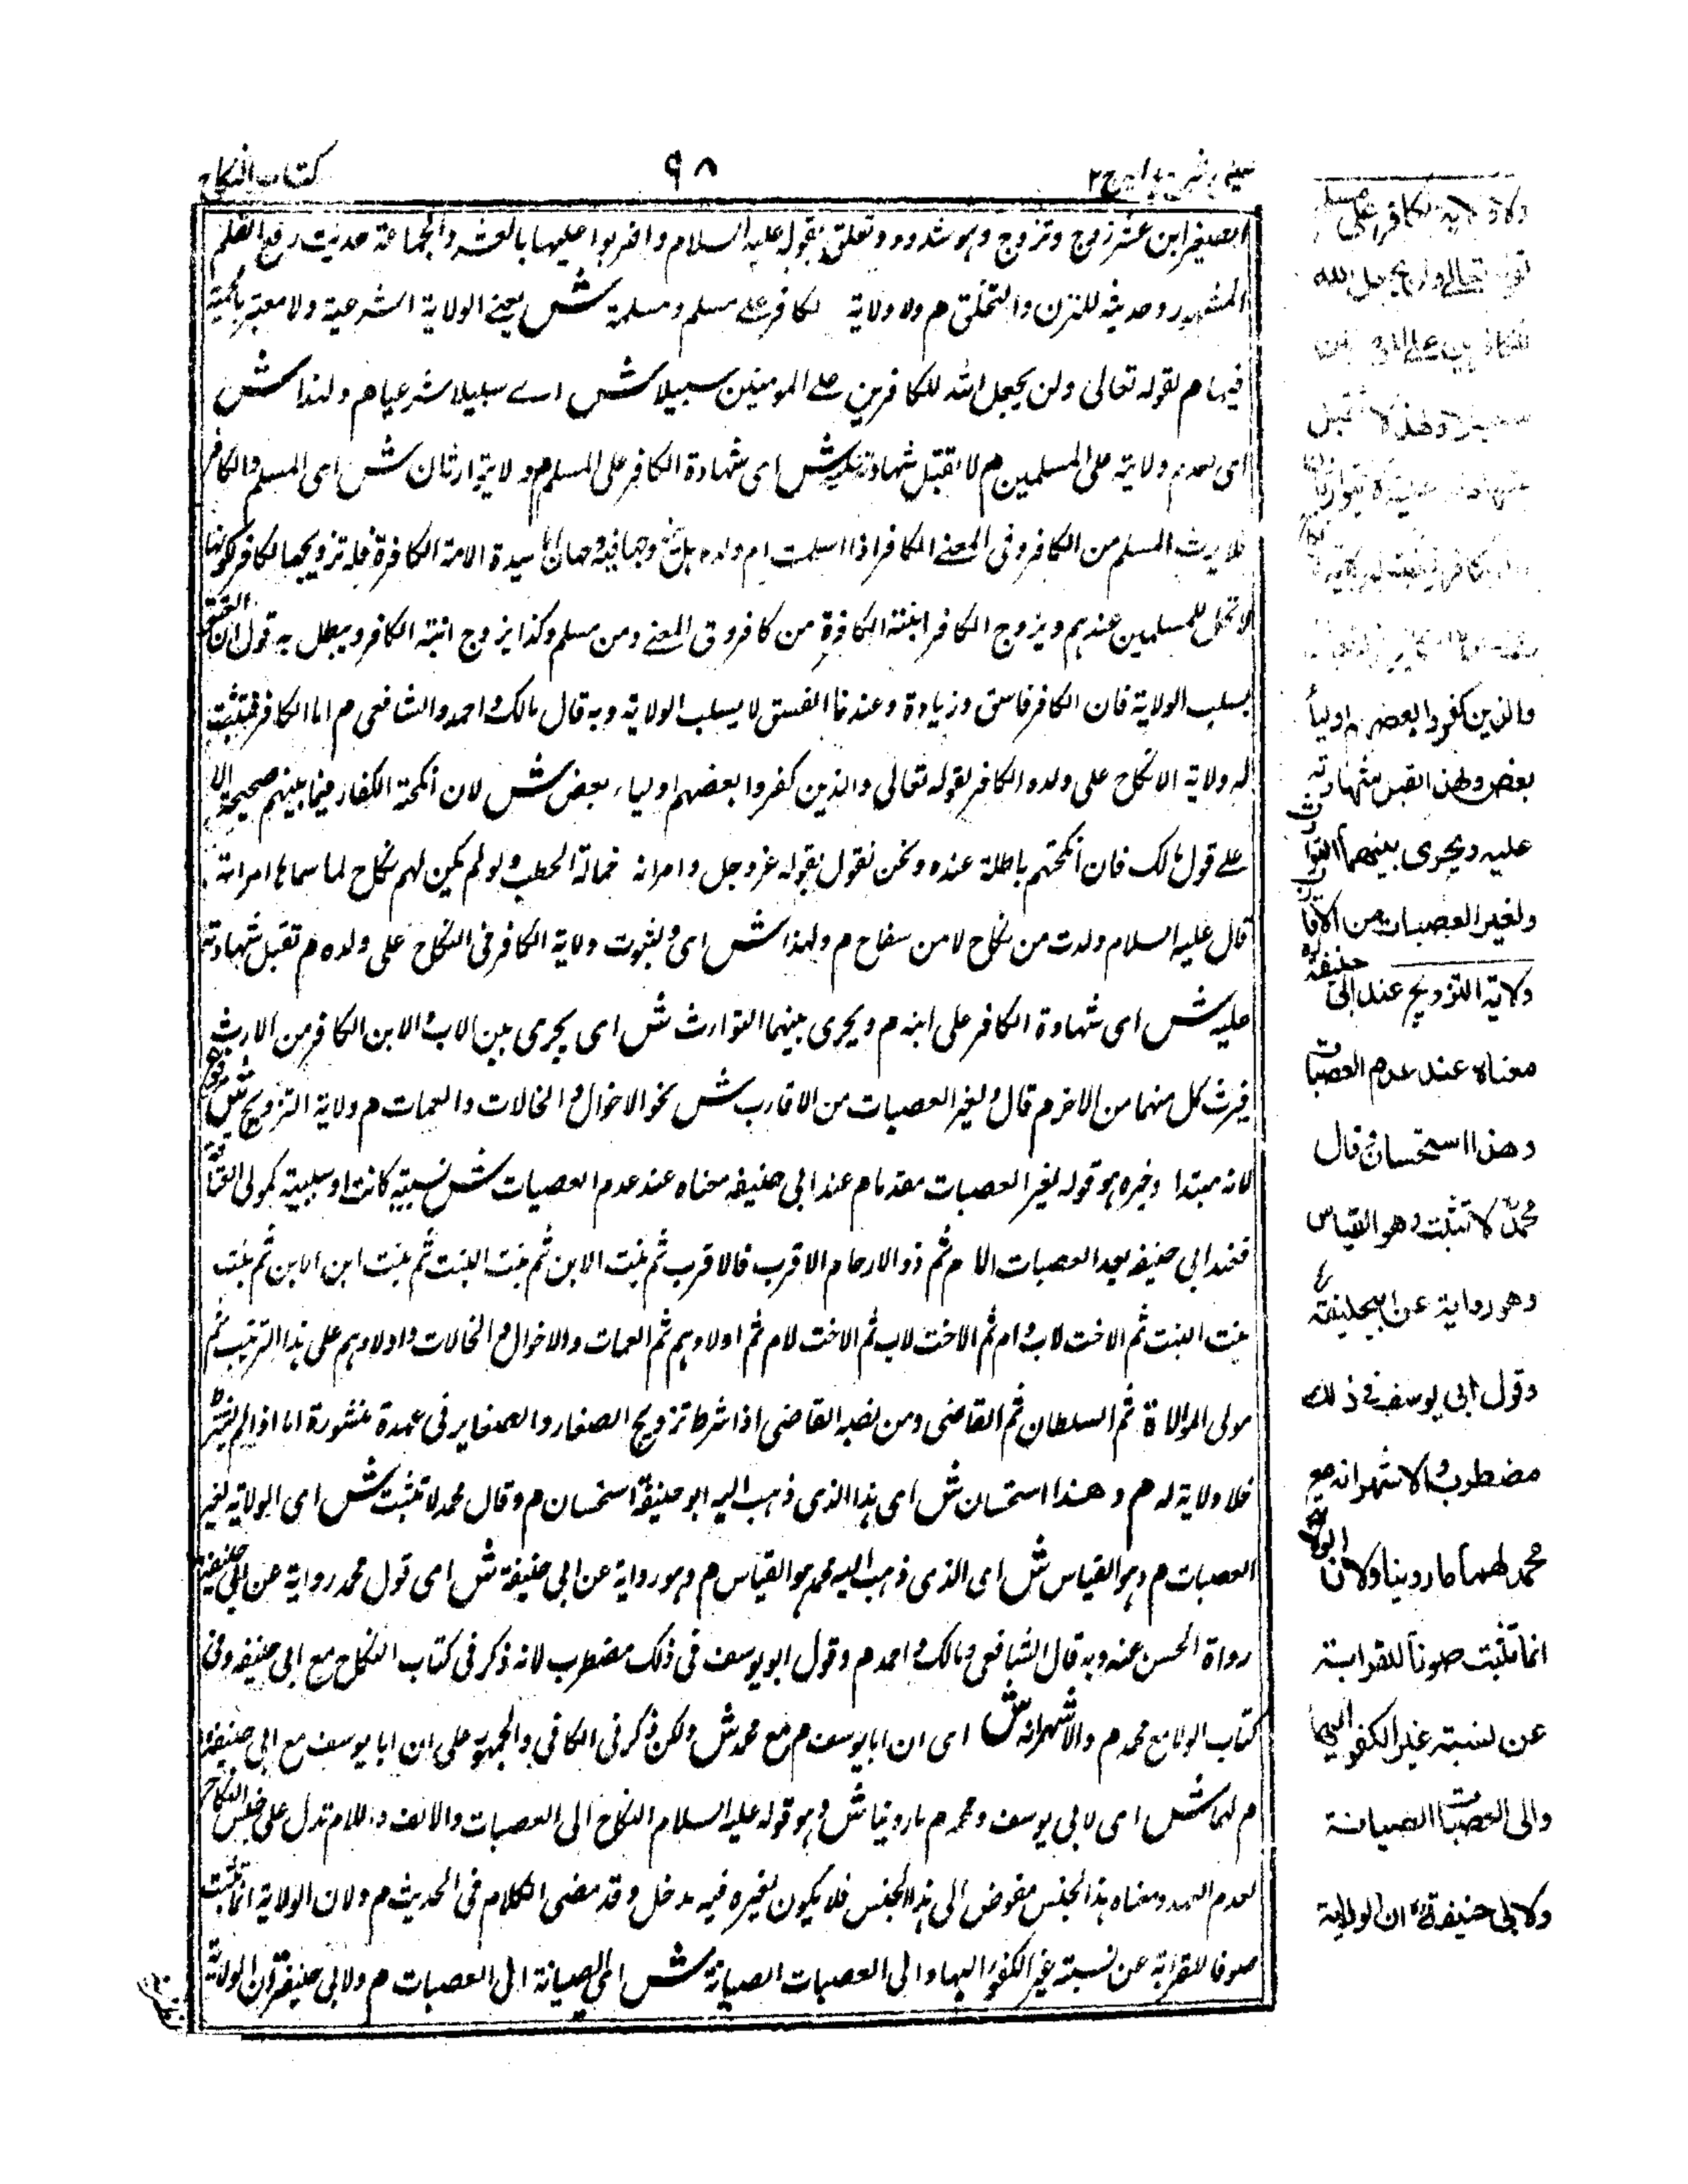 كتاب النكاح
٩٨
عينى شرح هدايه ج ٢
الصغير ابن عشر زوج وتزوج وهو شدود وتعلق بقوله عليه السلام واضربوا عليها بالعشر والجماعة حديث رفع القلم
المشهور وحديثه للتمرن والتخلق م ولا ولاية لكافر على مسلم ومسلمة ش يعنى الولاية الشرعية ولا معتبر
فيها م لقوله تعالى ولن يجعل الله للكافرين على المومنين سبيلا ش اى سبيلا شرعيا م ولهذا ش
اى لعدم ولايته على المسلمين م لا تقبل شهادته عليه ش اى شهادة الكافر على المسلم م ولا يتوارثان ش اى المسلم والكافر
فلا يرث المسلم من الكافر وفى المغنى الكافر اذا اسلمت ام ولده سيدة الامة الكافرة فله تزويجها لكافر لكونها
لا تحل للمسلمين عندهم ويزوج الكافر ابنته الكافرة من كافر وفى المغنى ومن مسلم وكذا يزوج ابنته الكافر ويبطل به قول ان الفسق
يسلب الولاية فان الكافر فاسق وزيادة وعندنا الفسق لا يسلب الولاية وبه قال مالك واحمد والشافعى م اما الكافر فتثبت
له ولاية الانكاح على ولده الكافر لقوله تعالى والذين كفروا بعضهم اولياء بعض ش لان انكحة الكفار فيما بينهم صحيحة الا
على قول مالك فان انكحتهم باطلة عنده ونحن نقول بقوله عز وجل وامراته حمالة الحطب ولو لم يكن لهم نكاح لما سماها امراته
قال عليه السلام ولدت من نكاح لا من سفاح م ولهذا ش اى ولثبوت ولاية الكافر فى النكاح على ولده م تقبل شهادته
عليه ش اى شهادة الكافر على ابنه م ويجرى بينهما التوارث ش اى يجرى بين الاب والابن الكافر من الارث
فيرث كل منهما من الاخر م قال ولغير العصبات من الاقارب ش نحو الاخوال والخالات والعمات م ولاية التزويج ش مرفوع
لانه مبتدا وخبره هو قوله لغير العصبات مقدما م عند ابى حنيفه معناه عند عدم العصبات ش نسبية كانت او سببية كمولى العتاقة
فعند ابى حنيفه بعد العصبات الام ثم ذو الارحام الاقرب فالاقرب ثم بنت الابن ثم بنت البنت ثم بنت ابن الابن ثم بنت
بنت البنت ثم الاخت لاب وام ثم الاخت لاب ثم الاخت لام ثم اولادهم ثم العمات والاخوال والخالات واولادهم على هذا الترتيب ثم
مولى الموالاة ثم السلطان ثم القاضى ومن نصبه القاضى اذا شرط تزويج الصغار والصغاير فى عهدة منشورة اما اذا لم يشترط
فلا ولاية له م وهذا استحسان ش اى هذا الذى ذهب اليه ابو حنيفة استحسان م وقال محمد لا تثبت ش اى الولاية لغير
العصبات م وهو القياس ش اى الذى ذهب اليه محمد هو القياس م وهو رواية عن ابى حنيفة ش اى قول محمد رواية عن ابى حنيفة
رواة الحسن عنه وبه قال الشافعى ومالك واحمد م وقول ابو يوسف فى ذلك مضطرب لانه ذكر فى كتاب النكاح مع ابى حنيفه وفى
كتاب الولا مع محمد م والاشهر انه ش اى ان ابا يوسف م مع محمد ش ولكن ذكر فى الكافى والجمهور على ان ابا يوسف مع ابى حنيفة
م لهما ش اى لابى يوسف ومحمد م ماروينا ش وهو قوله عليه السلام النكاح الى العصبات والالف واللام تدل على جنس النكاح
لعدم العهد ومعناه هذا الجنس مفوض الى هذا الجنس فلا يكون لغيره فيه مدخل وقد مضى الكلام فى الحديث م ولان الولاية انما تثبت
صونا للقرابة عن نسبته غير الكفؤ اليها والى العصبات الصيانة ش اى الصيانة الى العصبات م ولابى حنيفة ان الولاية
ولا ولاية لكافر على مسلم
تعالى ولن يجعل الله
للكافرين على المؤمنين
سبيلا ولهذا لا تقبل
شهادته عليه ولا يتوارثان
والذين كفروا بعضهم اولياء
بعض ولهذا تقبل شهادته
عليه ويجرى بينهما التوارث
ولغير العصبات من الاقارب
ولاية التزويج عند ابى حنيفة
معناه عند عدم العصبات
وهذا استحسان قال
محمد لا تثبت وهو القياس
وهو رواية عن ابيحنيفة
وقول ابى يوسف فى ذلك
مضطرب والاشهر انه مع
محمد لهما ما روينا ولان الولاية
انما تثبت صونا للقرابة
عن نسبة غير الكفو اليها
والى العصبات الصيانة
ولابى حنيفة ان الولاية